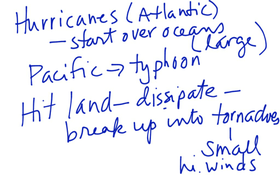 Hurricanes (Atlantic)
– start over oceans
(large)
Pacific → typhoon
Hit land – dissipate –
break up into tornadoes
small
hi. winds